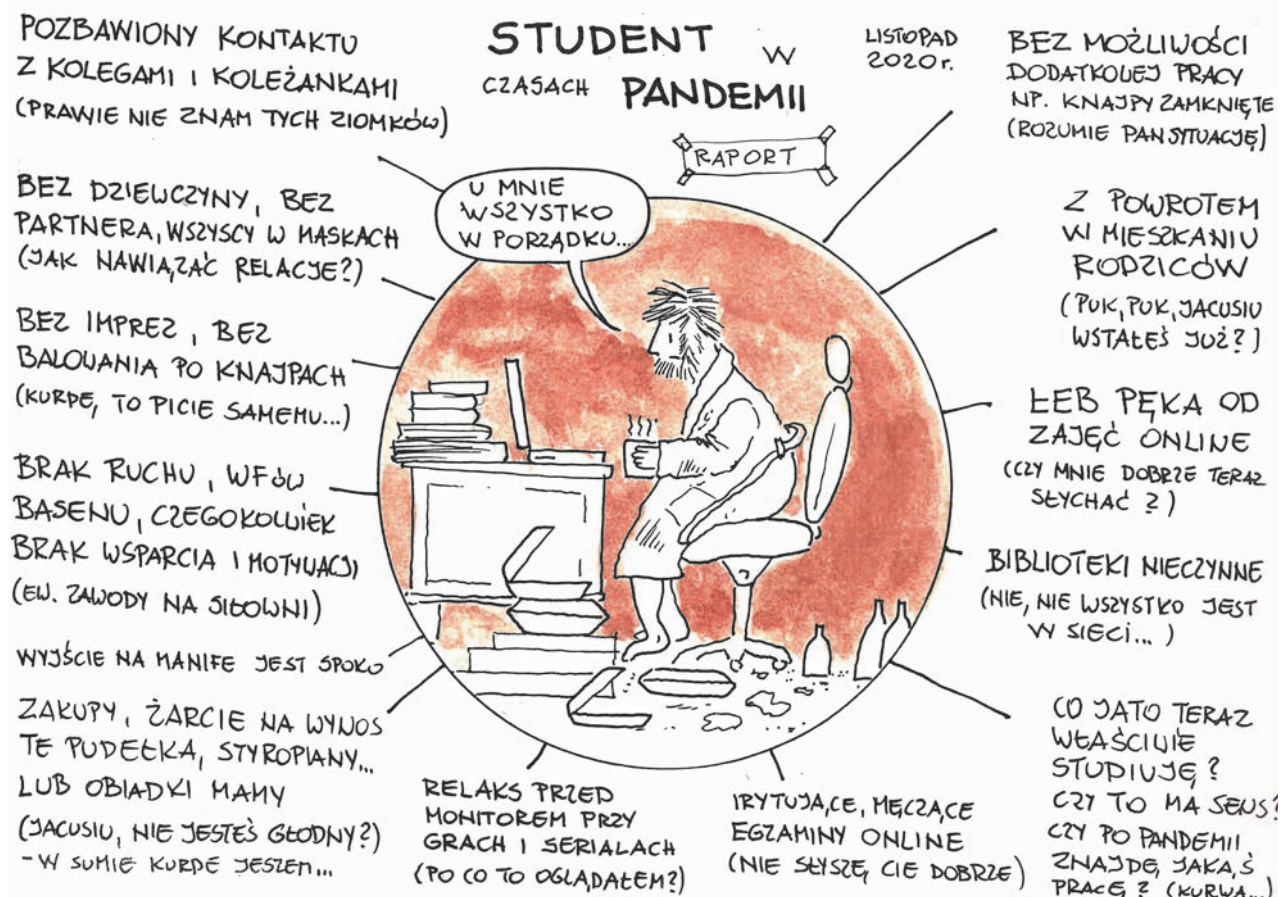 STUDENT W
CZASACH PANDEMII
LISTOPAD
2020r.
RAPORT
U MNIE
WSZYSTKO
W PORZĄDKU...
POZBAWIONY KONTAKTU
Z KOLEGAMI I KOLEŻANKAMI
(PRAWIE NIE ZNAM TYCH ZIOMKÓW)
BEZ DZIEWCZYNY, BEZ
PARTNERA, WSZYSCY W MASKACH
(JAK NAWIĄZAĆ RELACJE?)
BEZ IMPREZ, BEZ
BALOWANIA PO KNAJPACH
(KURDE, TO PICIE SAMEMU...)
BRAK RUCHU, WFÓW
BASENU, CZEGOKOLWIEK
BRAK WSPARCIA I MOTYWACJI
(EW. ZAWODY NA SIŁOWNI)
WYJŚCIE NA MANIFE JEST SPOKO
ZAKUPY, ŻARCIE NA WYNOS
TE PUDEŁKA, STYROPIANY...
LUB OBIADKI MAMY
(JACUSIU, NIE JESTEŚ GŁODNY?)
- W SUMIE KURDE JESZEM...
RELAKS PRZED
MONITOREM PRZY
GRACH I SERIALACH
(PO CO TO OGLĄDAŁEM?)
IRYTUJĄCE, MĘCZĄCE
EGZAMINY ONLINE
(NIE SŁYSZĘ CIE DOBRZE)
BEZ MOŻLIWOŚCI
DODATKOWEJ PRACY
NP. KNAJPY ZAMKNIĘTE
(ROZUMIE PAN SYTUACJĘ)
Z POWROTEM
W MIESZKANIU
RODZICÓW
(PUK, PUK, JACUSIU
WSTAŁEŚ JUŻ?)
ŁEB PĘKA OD
ZAJĘĆ ONLINE
(CZY MNIE DOBRZE TERAZ
SŁYCHAĆ?)
BIBLIOTEKI NIECZYNNE
(NIE, NIE WSZYSTKO JEST
W SIECI...)
CO JA TO TERAZ
WŁAŚCIWIE
STUDIUJĘ?
CZY TO MA SENS?
CZY PO PANDEMII
ZNAJDĘ JAKĄŚ
PRACĘ? (KURWA...)